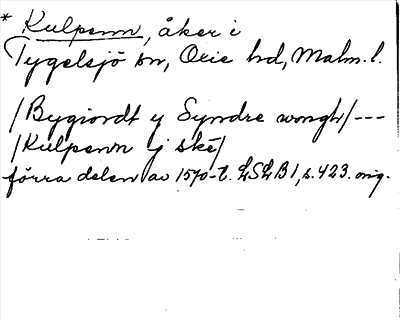 * Kulpenn, åker i
Tygelsjö sn, Oxie hd, Malm. l.
/Bygiordt y Syndre wongh/---
/Kulpenn j skē/
förra delen av 1570-t. LSLB 1, s. 423. orig.